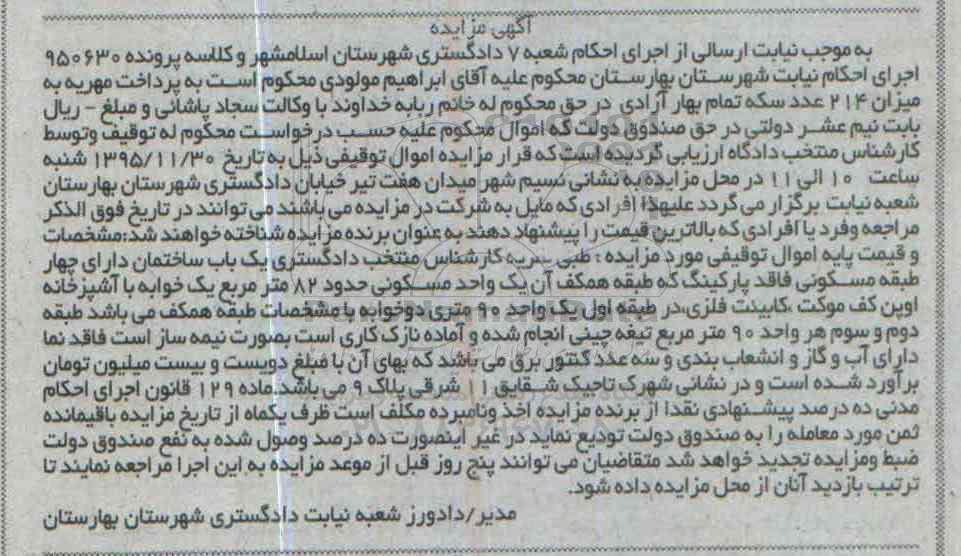 آگهی مزایده
به موجب نیابت ارسالی از اجرای احکام شعبه ۷ دادگستری شهرستان اسلامشهر و کلاسه پرونده ۹۵۰۶۳۰
اجرای احکام نیابت شهرستان بهارستان محکوم علیه آقای ابراهیم مولودی محکوم است به پرداخت مهریه به
میزان ۲۱۴ عدد سکه تمام بهار آزادی در حق محکوم له خانم ربابه خداوند با وکالت سجاد پاشائی و مبلغ - ریال
بابت نیم عشر دولتی در حق صندوق دولت که اموال محکوم علیه حسب درخواست محکوم له توقیف وتوسط
کارشناس منتخب دادگاه ارزیابی گردیده است که قرار مزایده اموال توقیفی ذیل به تاریخ ۱۳۹۵/۱۱/۳۰ شنبه
ساعت ۱۰ الی ۱۱ در محل مزایده به نشانی نسیم شهر میدان هفت تیر خیابان دادگستری شهرستان بهارستان
شعبه نیابت برگزار می گردد علیهذا افرادی که مایل به شرکت در مزایده می باشند می توانند در تاریخ فوق الذکر
مراجعه وفرد یا افرادی که بالاترین قیمت را پیشنهاد دهند به عنوان برنده مزایده شناخته خواهند شد:مشخصات
و قیمت پایه اموال توقیفی مورد مزایده : طبق نظریه کارشناس منتخب دادگستری یک باب ساختمان دارای چهار
طبقه مسکونی فاقد پارکینگ که طبقه همکف آن یک واحد مسکونی حدود ۸۲ متر مربع یک خوابه با آشپزخانه
اوپن کف موکت ،کابینت فلزی،در طبقه اول یک واحد ۹۰ متری دوخوابه با مشخصات طبقه همکف می باشد طبقه
دوم و سوم هر واحد ۹۰ متر مربع تیغه چینی انجام شده و آماده نازک کاری است بصورت نیمه ساز است فاقد نما
دارای آب و گاز و انشعاب بندی و سه عدد کنتور برق می باشد که بهای آن با مبلغ دویست و بیست میلیون تومان
برآورد شده است و در نشانی شهرک تاجیک شقایق ۱۱ شرقی پلاک ۹ می باشد.ماده ۱۲۹ قانون اجرای احکام
مدنی ده درصد پیشنهادی نقدا از برنده مزایده اخذ ونامبرده مکلف است ظرف یکماه از تاریخ مزایده باقیمانده
ثمن مورد معامله را به صندوق دولت تودیع نماید در غیر اینصورت ده درصد وصول شده به نفع صندوق دولت
ضبط ومزایده تجدید خواهد شد متقاضیان می توانند پنج روز قبل از موعد مزایده به این اجرا مراجعه نمایند تا
ترتیب بازدید آنان از محل مزایده داده شود.
مدیر/دادورز شعبه نیابت دادگستری شهرستان بهارستان